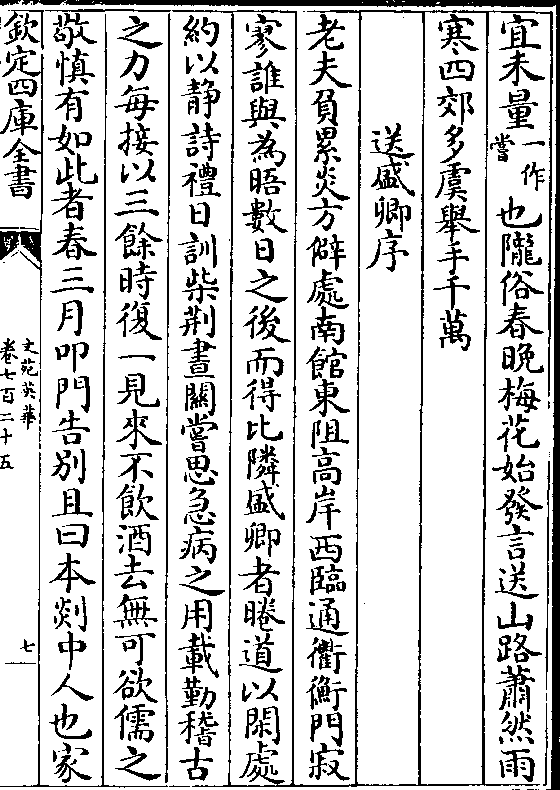 宜未量一作嘗也隴俗春晚梅花始發言送山路蕭然雨
寒四郊多虞舉手千萬
送盛卿序
老夫負累炎方僻處南館東阻高岸西臨通衢衡門寂
寥誰與為晤數日之後而得比隣盛卿者睠道以閑處
約以静詩禮日訓柴荆晝關嘗思急病之用載勤稽古
之力每接以三餘時復一見來不飲酒去無可欲儒之
敬慎有如此者春三月叩門告别且曰本剡中人也家
欽定四庫全書
文苑英華
卷七百二十五
七